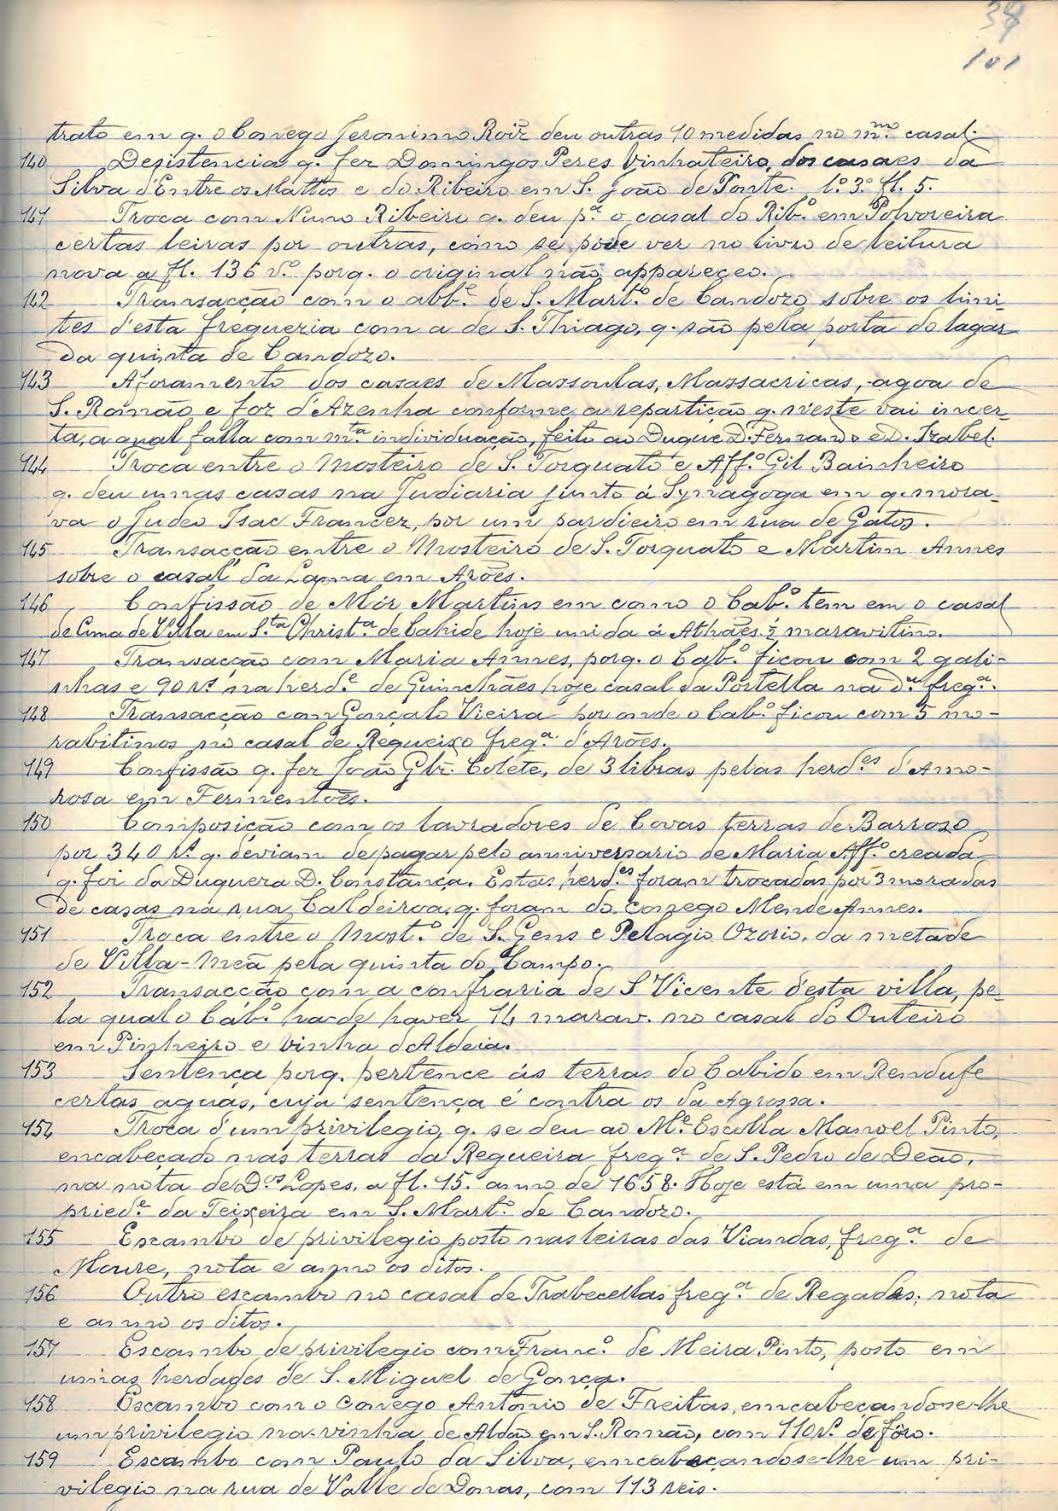 38
101
trato em q. o Conego Jeronimo Roiz deu outras 10 medidas no m.mo casal.
140 Desistencia q. fez Domingos Peres Vinhateiro, dos casaes da
Silva d'Entre os Mattos e do Ribeiro em S. João de Ponte. l.o 3.o fl. 5.
141 Troca com Nuno Ribeiro q. deu p.a o casal do Rib.o em Polvoreira
certas leiras por outras, como se póde ver no livro de leitura
nova a fl. 136 v.o porq. o original não appareçeo.
142 Transacção com o abb.e de S. Mart.o de Candozo sobre os limi-
tes d'esta fregueria com a de S. Thiago, q. são pela porta do lagar
da quinta de Candozo.
143 Aforamento dos casaes de Massoulas, Massacricas, agoa de
S. Romão e foz d'Azenha conforme a repartição q. n'este vai incer-
ta, a qual falla com m.ta individuação, feito ao Duque D. Fernando e D. Izabel.
144 Troca entre o Mosteiro de S. Torquato e Aff.o Gil Bainheiro
q. deu umas casas na Judiaria junto á Synagoga em q. mora-
va o Judeo Isac Francez, por um pardieiro em rua de Gatos.
145 Transacção entre o Mosteiro de S. Torquato e Martim Annes
sobre o casal da Lama em Arões.
146 Confissão de Mór Martins em como o Cab.o tem em o casal
de Cima de Villa em S.ta Christ.a de Cahide hoje unida á Athães ½ maravitino.
147 Transacção com Maria Annes, porq. o Cab.o ficou com 2 gali-
nhas e 90 r.s na herd.e de Guinchães hoje casal da Portella na d.a freg.a.
148 Transacção com Gonçalo Vieira por onde o Cab.o ficou com 5 mo-
rabitinos no casal de Requeixo freg.a d'Arões.
149 Confissão q. fez João Glz. Colete, de 3 libras pelas herd.es d'Amo-
rosa em Fermentões.
150 Composição com os lavradores de Covas terras de Barrozo
por 340 r.s q. deviam de pagar pelo anniversario de Maria Aff.o creada
q. foi da Duqueza D. Constança. Estas herd.es foram trocadas por 3 moradas
de casas na rua Caldeiroa, q. foram do Conego Mende Annes.
151 Troca entre o Most.o de S. Gens e Pelagio Ozorio, da metade
de Villa-Meã pela quinta do Campo.
152 Transacção com a confraria de S Vicente d'esta villa, pe-
la qual o Cab.o ha-de haver 14 marav. no casal do Outeiro
em Pinheiro e vinha d'Aldeia.
153 Sentença porq. pertence ás terras do Cabido em Rendufe
certas aguas, cuja sentença é contra os da Agrossa.
154 Troca d'um privilegio, q. se deu ao M.e Escolla Manoel Pinto,
encabeçado nas terras da Regueira freg.a de S. Pedro de Deão,
na nota de D.os Lopes, a fl. 15. anno de 1658. Hoje está em uma pro-
pried.e da Teixeira em S. Mart.o de Candozo.
155 Escambo de privilegio posto nas leiras das Viandas, freg.a de
Moure, nota e anno os ditos.
156 Outro escambo no casal de Trabecellas freg.a de Regadas, nota
e anno os ditos.
157 Escambo de privilegio com Franc.o de Meira Pinto, posto em
umas herdades de S. Miguel de Gonça.
158 Escambo com o Conego Antonio de Freitas, encabeçandose-lhe
um privilegio na vinha de Aldão em S. Romão, com 110 r.s de fôro.
159 Escambo com Paulo da Silva, encabeçandose-lhe um pri-
vilegio na rua de Valle de Donas, com 113 reis.